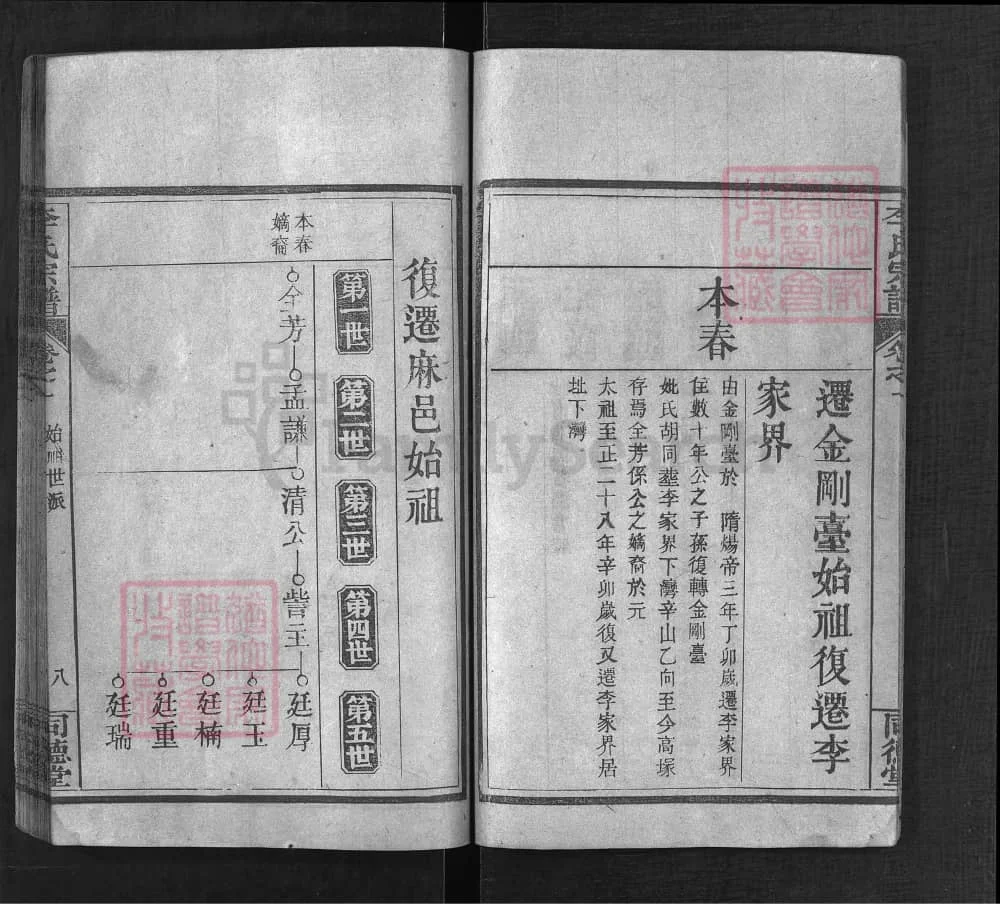 遷金剛臺始祖復遷李
家界
本春
由金剛臺於 隋煬帝三年丁卯歲遷李家界
住數十年公之子孫復轉金剛臺
妣氏胡同塟李家界下灣辛山乙向至今高塚
存焉全芳係公之嫡裔於元
太祖至正二十八年辛卯歲復又遷李家界居
址下灣
李氏宗譜
同德堂
復遷麻邑始祖
第一世
第二世
第三世
第四世
第五世
本春
嫡裔
全芳
孟謙
清公
訾王
廷厚
廷玉
廷楠
廷重
廷瑞
李氏宗譜
始祖世派
八
同德堂